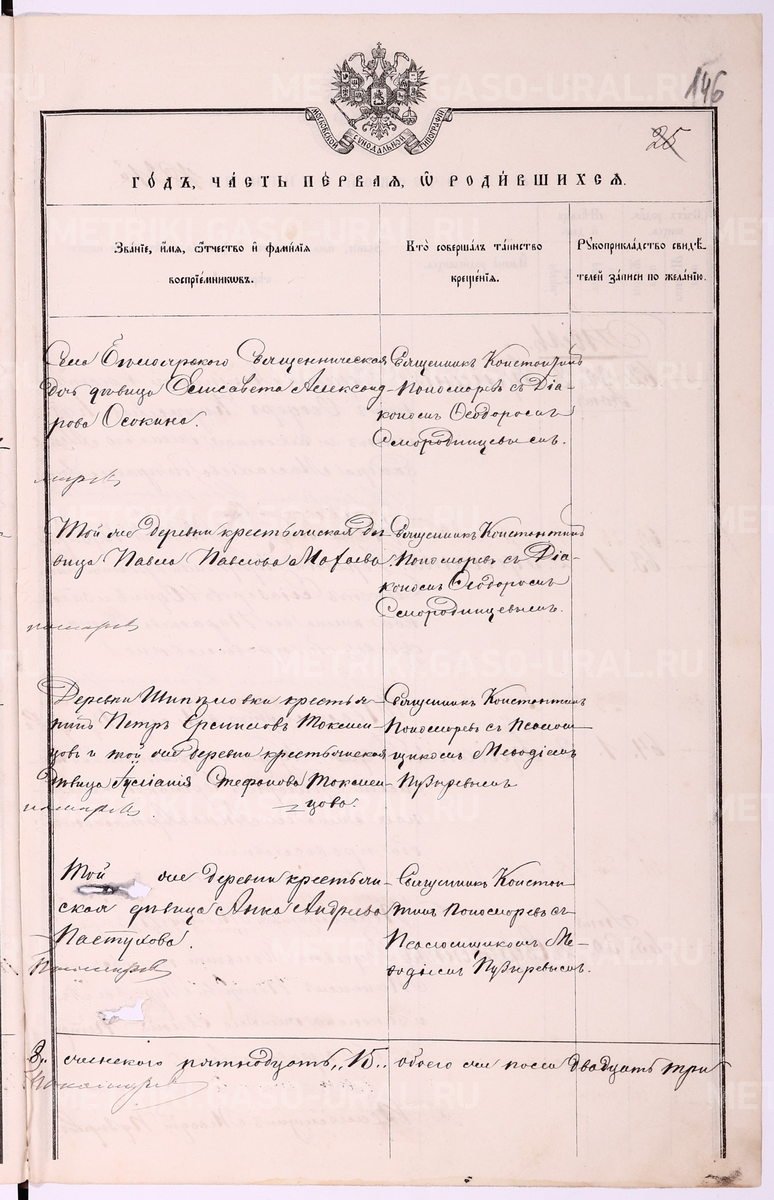 146
25
МОСКОВСКОЙ СѴНОДАЛЬНОЙ ТИПОГРАФІИ
ГОДЪ, ЧАСТЬ ПЕРВАЯ, Ѡ РОДИВШИХСЯ.
Званіе, имя, отчество и фамилія
воспріемниковъ.
Кто совершалъ таинство
крещенія.
Рукоприкладство свидѣ-
телей записи по желанію.
Села Священническая
дочь дѣвица Елисавета Александ
рова Осокина.
Священникъ Константинъ
Пономаревъ съ Діа-
кономъ Ѳеодоромъ
Смородинцевымъ.
Той же деревни крестьянская дѣ-
вица Павла Павлова
Священникъ Константинъ
Пономаревъ съ Діа-
кономъ Ѳеодоромъ
Смородинцевымъ.
Деревни Шипѣловки крестья-
нинъ Петръ Токмен-
цовъ и той же деревни крестьянская
дѣвица Стефанова Токмен-
цова.
Священникъ Константинъ
Пономаревъ съ Псалом-
щикомъ Меѳодіемъ
Пузыревымъ
Той же деревни крестьян-
ская дѣвица Анна Андреева
Пастухова.
Священникъ Констан-
тинъ Пономаревъ съ
Псаломщикомъ Ме-
ѳодіемъ Пузыревымъ.
8, женскаго пятнадцать „15„ обоего же пола двадцать три
METRIKI.GASO-URAL.RU